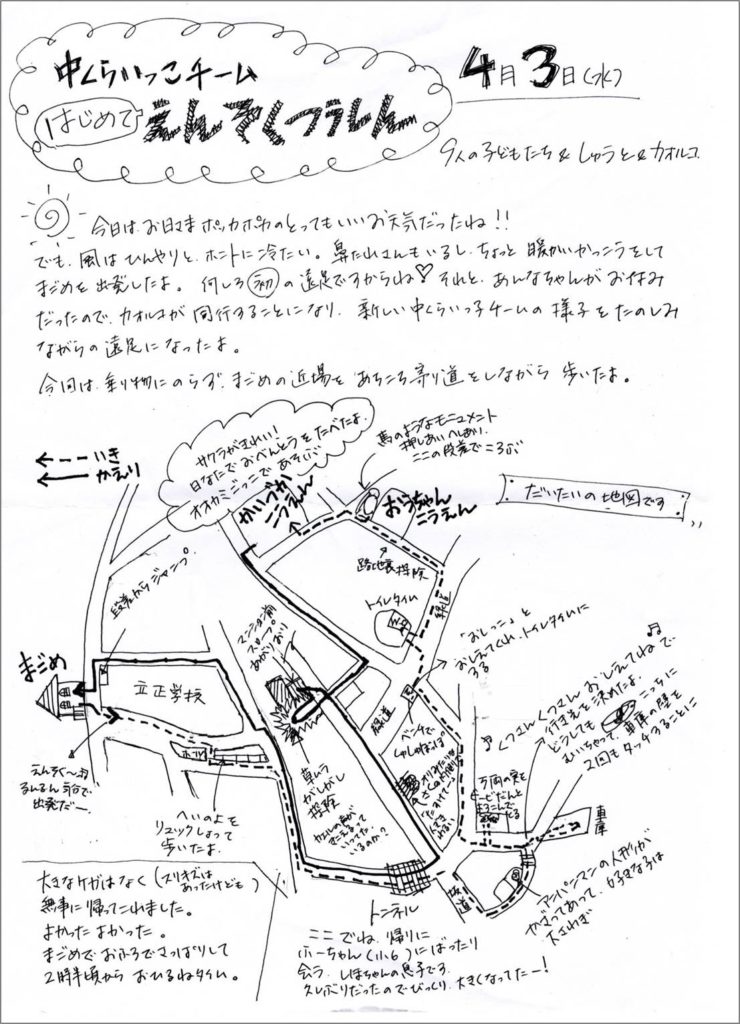 中くらいっこチーム
はじめて えんそくつうしん
4月3日(水)
9人の子どもたち & しゅうと & カオルコ
今日は、お日さま ポッカポカの とってもいい お天気だったね!!
でも、風は ひんやりと、ホントに冷たい。鼻たれさんもいるし、ちょっと 暖かいかっこうをして
まじめを出発したよ。何しろ 初 の遠足ですからね♡ それと、あんなちゃんが お休み
だったので、カオルコが 同行することになり、新しい 中くらいっ子チームの 様子を たのしみ
ながらの 遠足になったよ。
今回は、乗り物にのらず、まじめの近場を あちこち 寄り道をしながら 歩いたよ。
いき
かえり
サクラがきれい!
日なたで おべんとうをたべたよ。
オオカミごっこで あそぶ
かいづか
こうえん
馬のようなモニュメント
押しあいへしあい、
ここの段差でころぶ
おうちゃん
こうえん
だいたいの地図です
段差からジャンプ
路地裏探険
トイレタイム
W.C
緑道
「おしっこ」と
おしえてくれ、トイレタイムに
する
まじめ
立正学校
マンション前
スロープ
あがりおり
緑道
ベンチで
しゅしゅぽっぽ
くつさんくつさん おしえてね で
行き先を決めたよ。
どうしても こっちに
むいちゃって、車庫の壁を
2回もタッチすることに
えんそく〜
るんるん 気分で
出発だー。
ホール
へいのよこを
リュックしょって
歩いたよ。
草ムラ
がしがし
探険
車庫
坂道
トンネル
アンパンマンの人形が
かざってあって、好きな子は
大さわぎ
大きなケガはなく(スリキズは
あったけども)
無事に帰ってこれました。
よかったよかった。
まじめでおふろでさっぱりして
2時半頃から おひるねタイム。
ここでね、帰りに
ふーちゃん(小6)にばったり
会う。しほちゃんの息子です。
久しぶりだったのでびっくり、大きくなってたー!